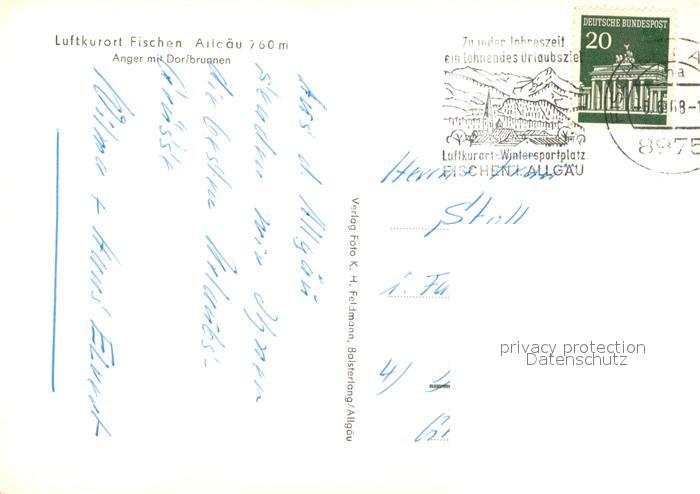 Luftkurort Fischen Allgäu 760 m
Anger mit Dorfbrunnen
Aus d. Allgäu
senden wir Ihnen
die besten Urlaubs-
grüsse
Wilma + Hans
Verlag Foto K. H. Feldmann, Bolsterlang/Allgäu
Zu jeder Jahreszeit
ein lohnendes Urlaubsziel
Luftkurort-Wintersportplatz
FISCHEN I. ALLGÄU
DEUTSCHE BUNDESPOST
20
8975
Stoll
i. Fa
4)
privacy protection
Datenschutz